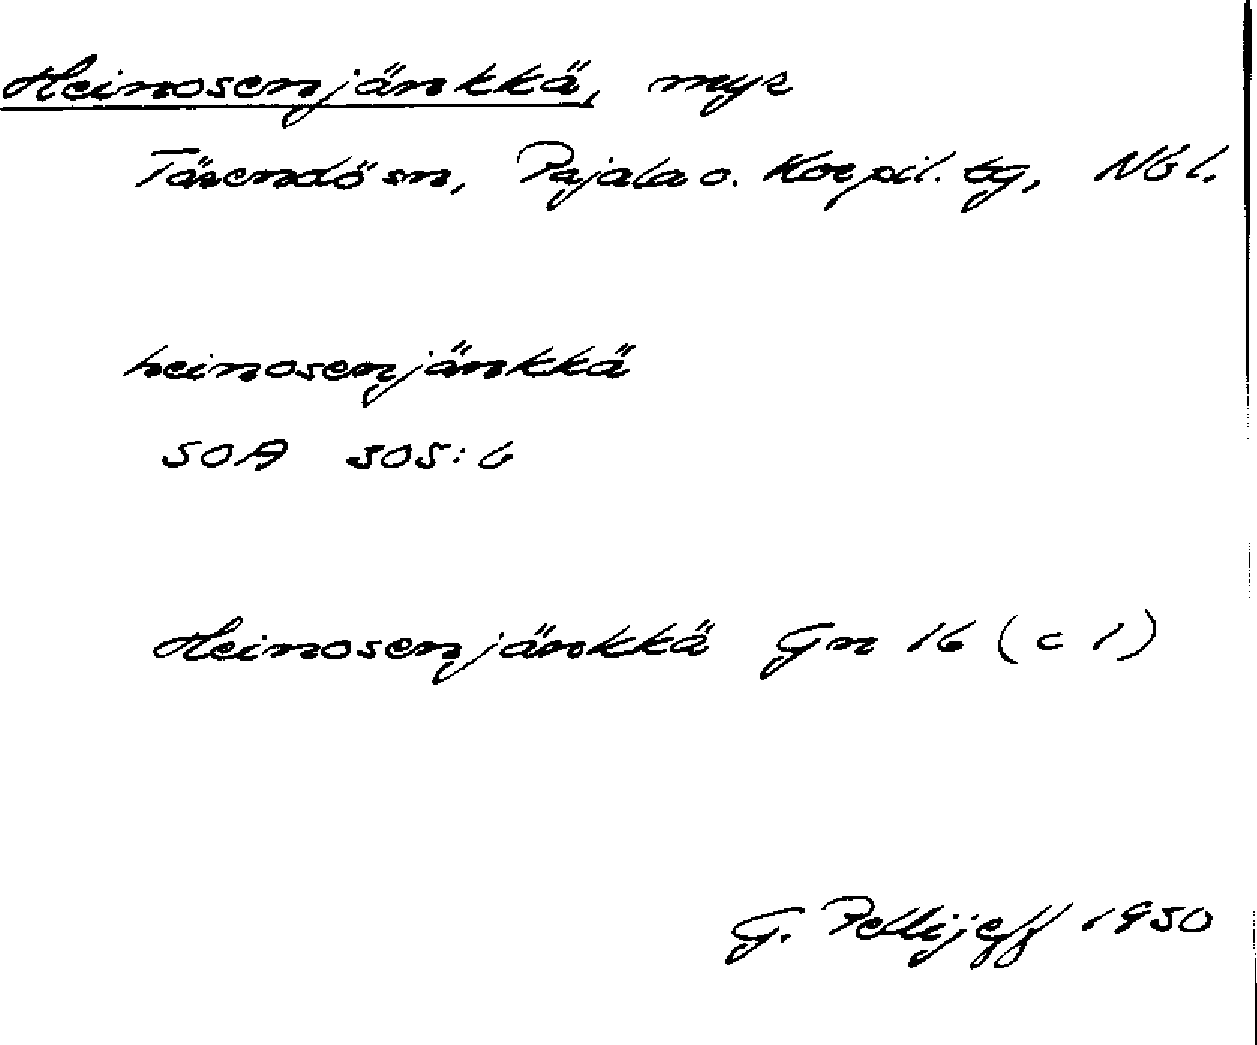 Heinosenjänkkä, myr
Tärendö sn, Pajala o. Korpil. tg, Nbl.
heinosenjänkkä
SOA 305:6
Heinosenjänkkä Gn 16 (c 1)
G. Pellijeff 1950